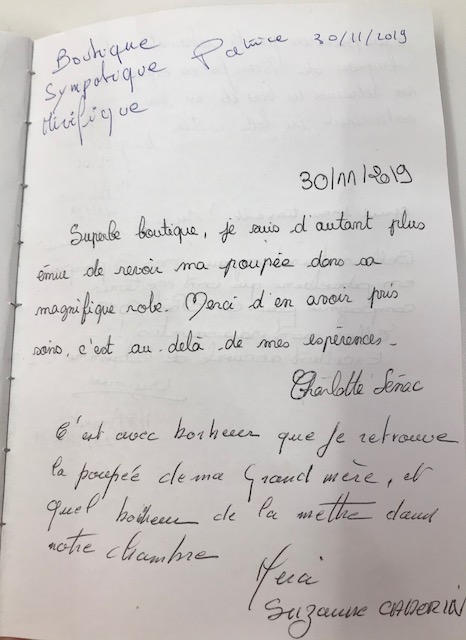 Boutique Patrice 30/11/2019
Sympatique
Mirifique
30/11/2019
Superbe boutique, je suis d'autant plus
émue de revoir ma poupée dans sa
magnifique robe. Merci d'en avoir pris
soins, c'est au delà de mes espérences.
Charlotte Sénac
C'est avec bonheur que je retrouve
la poupée de ma Grand mère, et
quel bonheur de la mettre dans
notre chambre
Merci
Suzanne